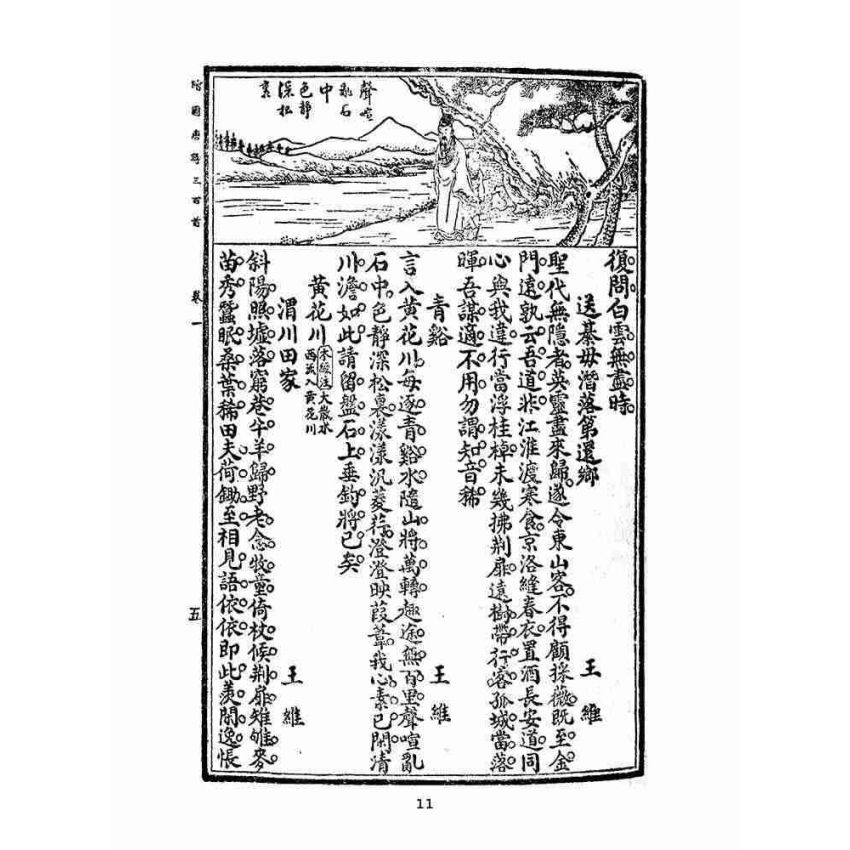 聲喧
亂石
中
色靜
深松
裏
復問白雲無盡時。
送綦毋潛落第還鄉 王維
聖代無隱者。英靈盡來歸。遂令東山客。不得顧採薇。既至金
門遠。孰云吾道非。江淮渡寒食。京洛縫春衣。置酒長安道。同
心與我違。行當浮桂棹。未幾拂荆扉。遠樹帶行客。孤城當落
暉。吾謀適不用。勿謂知音稀。
青谿 王維
言入黃花川。每逐青谿水。隨山將萬轉。趣途無百里。聲喧亂
石中。色靜深松裏。漾漾汎菱荇。澄澄映葭葦。我心素已閒。清
川澹如此。請留盤石上。垂釣將已矣。
黃花川 水經注大散水
西流入黃花川
渭川田家 王維
斜陽照墟落。窮巷牛羊歸。野老念牧童。倚杖候荆扉。雉雊麥
苗秀。蠶眠桑葉稀。田夫荷鋤至。相見語依依。即此羨閒逸。悵
繪圖唐詩三百首 卷一 五
11